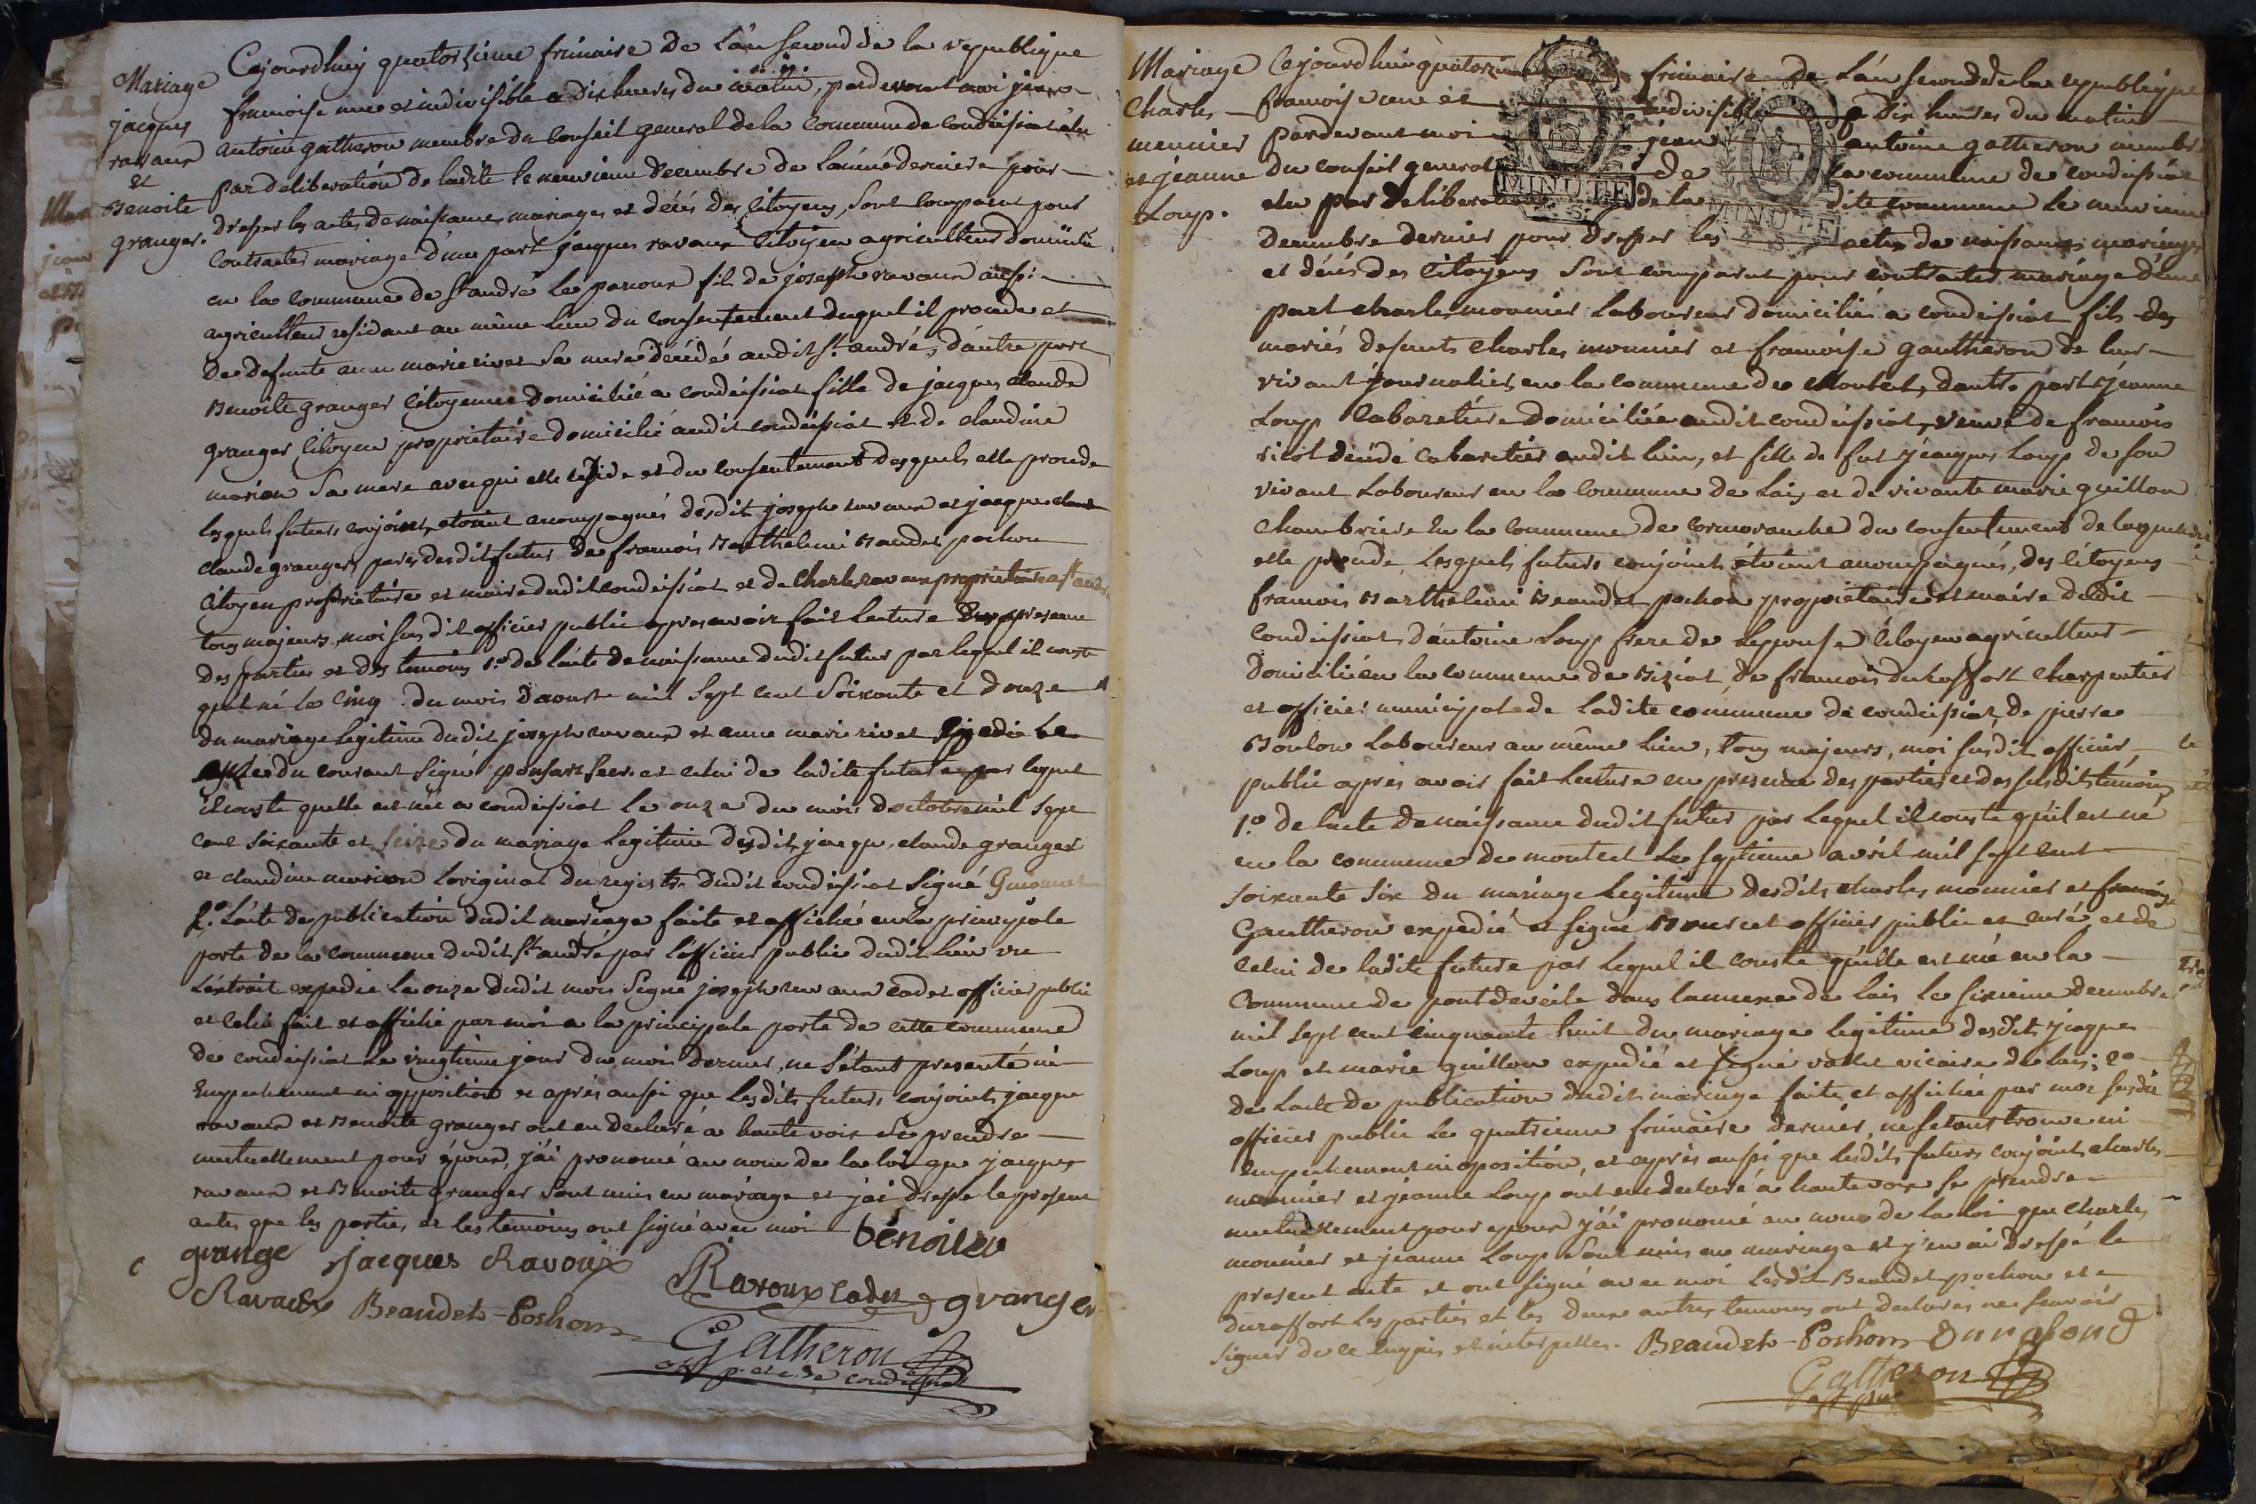 Mariage
jacques
ravaux
et
Benoite
granger.
Cejourdhuy quatorzieme frimaire de L'an second de la republique
francoise une et indivisible a dix heures du matin, pardevant moi jean
antoine gatheron membre du conseil general de la commune de condeissiat élu
par deliberation de ladite le neuvieme decembre de l'année derniere pour
dresser les actes de naissances mariages et décés des Citoyens, sont comparut pour
contracter mariage d'une part jacques ravaux Citoyen agriculteur domicilié
en la commune de St andré le panoux fil de joseph ravaux aussi
agriculteur residant au même lieu du consentement duquel il procede et
de defunte anne marie rivet sa mere décédé audit St andré, d'autre part
Benoite granger Citoyenne domiciliée a condeissiat fille de jacques claude
granger Citoyen proprietaire domicilié audit condeissiat et de claudine
marion sa mere avec qui elle reside et du consentement desquels elle procede
lesquels futurs conjoints etoient acompagnés desdits joseph ravaux et jacques
claude granger, peres desdits futurs de francois Barthelemi Baudet pochon
Citoyen proprietaire et maire dudit condeissiat et de Charle ravaux proprietaire a St andré
tous majeurs, moi susdit officier public apres avoir fait lecture en presence
des parties et des temoins 1.º de l'acte de naissance dudit futur par lequel il conste
quil né le cinq du mois d'aoust mil sept cent soixante et douze
du mariage legitime dudit joseph ravaux et anne marie rivet expedié le
onze du courant signé ponsart et celui de ladite future par lequel
il conste quelle est née a condeissiat le onze du mois d'octobre mil sept
cent soixante et seize du mariage legitime desdits jacque claude granger
et claudine marion l'original du registre dudit condeissiat signé
2.º L'acte de publication dudit mariage faite et affiché en la principale
porte de la commune dudit St andré par l'officier public dudit lieu vu
L'extrait expedié le onze dudit mois signé joseph ravaux cadet officier public
et celui fait et affiché par moi a la principale porte de cette commune
de condeissiat le vingtieme jour du mois dernier, ne s'étant presenté ni
Empechement ni opposition et après aussi que lesdits futurs conjoints jacque
ravaux et Benoite granger ont eu declaré a haute voix se prendre
mutuellement pour époux, j'ai prononcé au nom de la loi que jacques
ravaux et Benoite granger sont unis en mariage et j'ai dressé le present
acte que les parties et les temoins ont signé avec moi benoite
grange jacques Ravoux Ravoux cadet granger
Ravaux Beaudet-Pochon
Gatheron
off p. et c. de condeissiat
Mariage
Charles
monnier
et jeanne
Loup.
Cejourdhui quatorzieme frimaire de L'an second de la republique
francoise une et indivisible a dix heures du matin
pardevant moi jean antoine gatheron membre
du conseil general de la commune de condeissiat
elu par deliberation de la dite commune le neuvieme
decembre dernier pour dresser les actes de naissances mariages
et décés des Citoyens sont comparut pour contracter mariage d'une
part charles monnier Laboureur domicilié a condeissiat fils des
mariés defunts charles monnier et francoise gautheron de leur
vivant journaliers en la commune de Montcet, d'autre part jeanne
Loup Cabaretiere domiciliée audit condeissiat, veuve de francois
décédé cabaretier audit lieu, et fille de fut jacques Loup de son
vivant Laboureur en la commune de Lais et de vivante marie guillon
chambriere en la commune de cormoranche du consentement de laquelle
elle procede, Lesquels futurs conjoints étoient acompagnés, des Citoyens
francois Barthelemi Beaudet pochon proprietaire et maire dudit
condeissiat, d'antoine Loup frere de l'epouse Citoyen agriculteur
domicilié en la commune de Biziat, de francois duraffort charpentier
et officier municipal de ladite commune de condeissiat, de pierre
Boulon Laboureur au même lieu, tous majeurs, moi susdit officier
public apres avoir fait lecture en presence des parties et des susdits témoins
1.º de l'acte de naissance dudit futur par Lequel il conste qu'il est né
en la commune de montcet le septieme avril mil sept cent
soixante six du mariage Legitime desdits charles monnier et francoise
Gautheron expedié et signé officier public et curé, et de
celui de ladite future par lequel il conste qu'elle est née en la
commune de pontdeveile dans l'annexe de lais le sixieme decembre
mil sept cent cinquante huit du mariage legitime desdits jacque
Loup et marie guillon expedié et signé vallet vicaire de lais; 2º
de l'acte de publication dudit mariage faite et affichée par moi susdit
officier public le quatrieme frimaire dernier, ne s'etant trouvé ni
empechement ni oposition, et apres aussi que lesdits futurs conjoints charles
monnier et jeanne Loup ont eu declaré a haute voix se prendre
mutuellement pour epoux j'ai prononcé au nom de la loi que Charles
monnier et jeanne Loup sont unis en mariage et j'en ai dressé le
present acte et ont signé avec moi lesdits Beaudet pochon et
duraffort les parties et les deux autres temoins ont declarés ne scavoir
signer de ce enquis et interpellés. Beaudet-Pochon Durafond
Gatheron
off pu
MINUTE
MINUTE